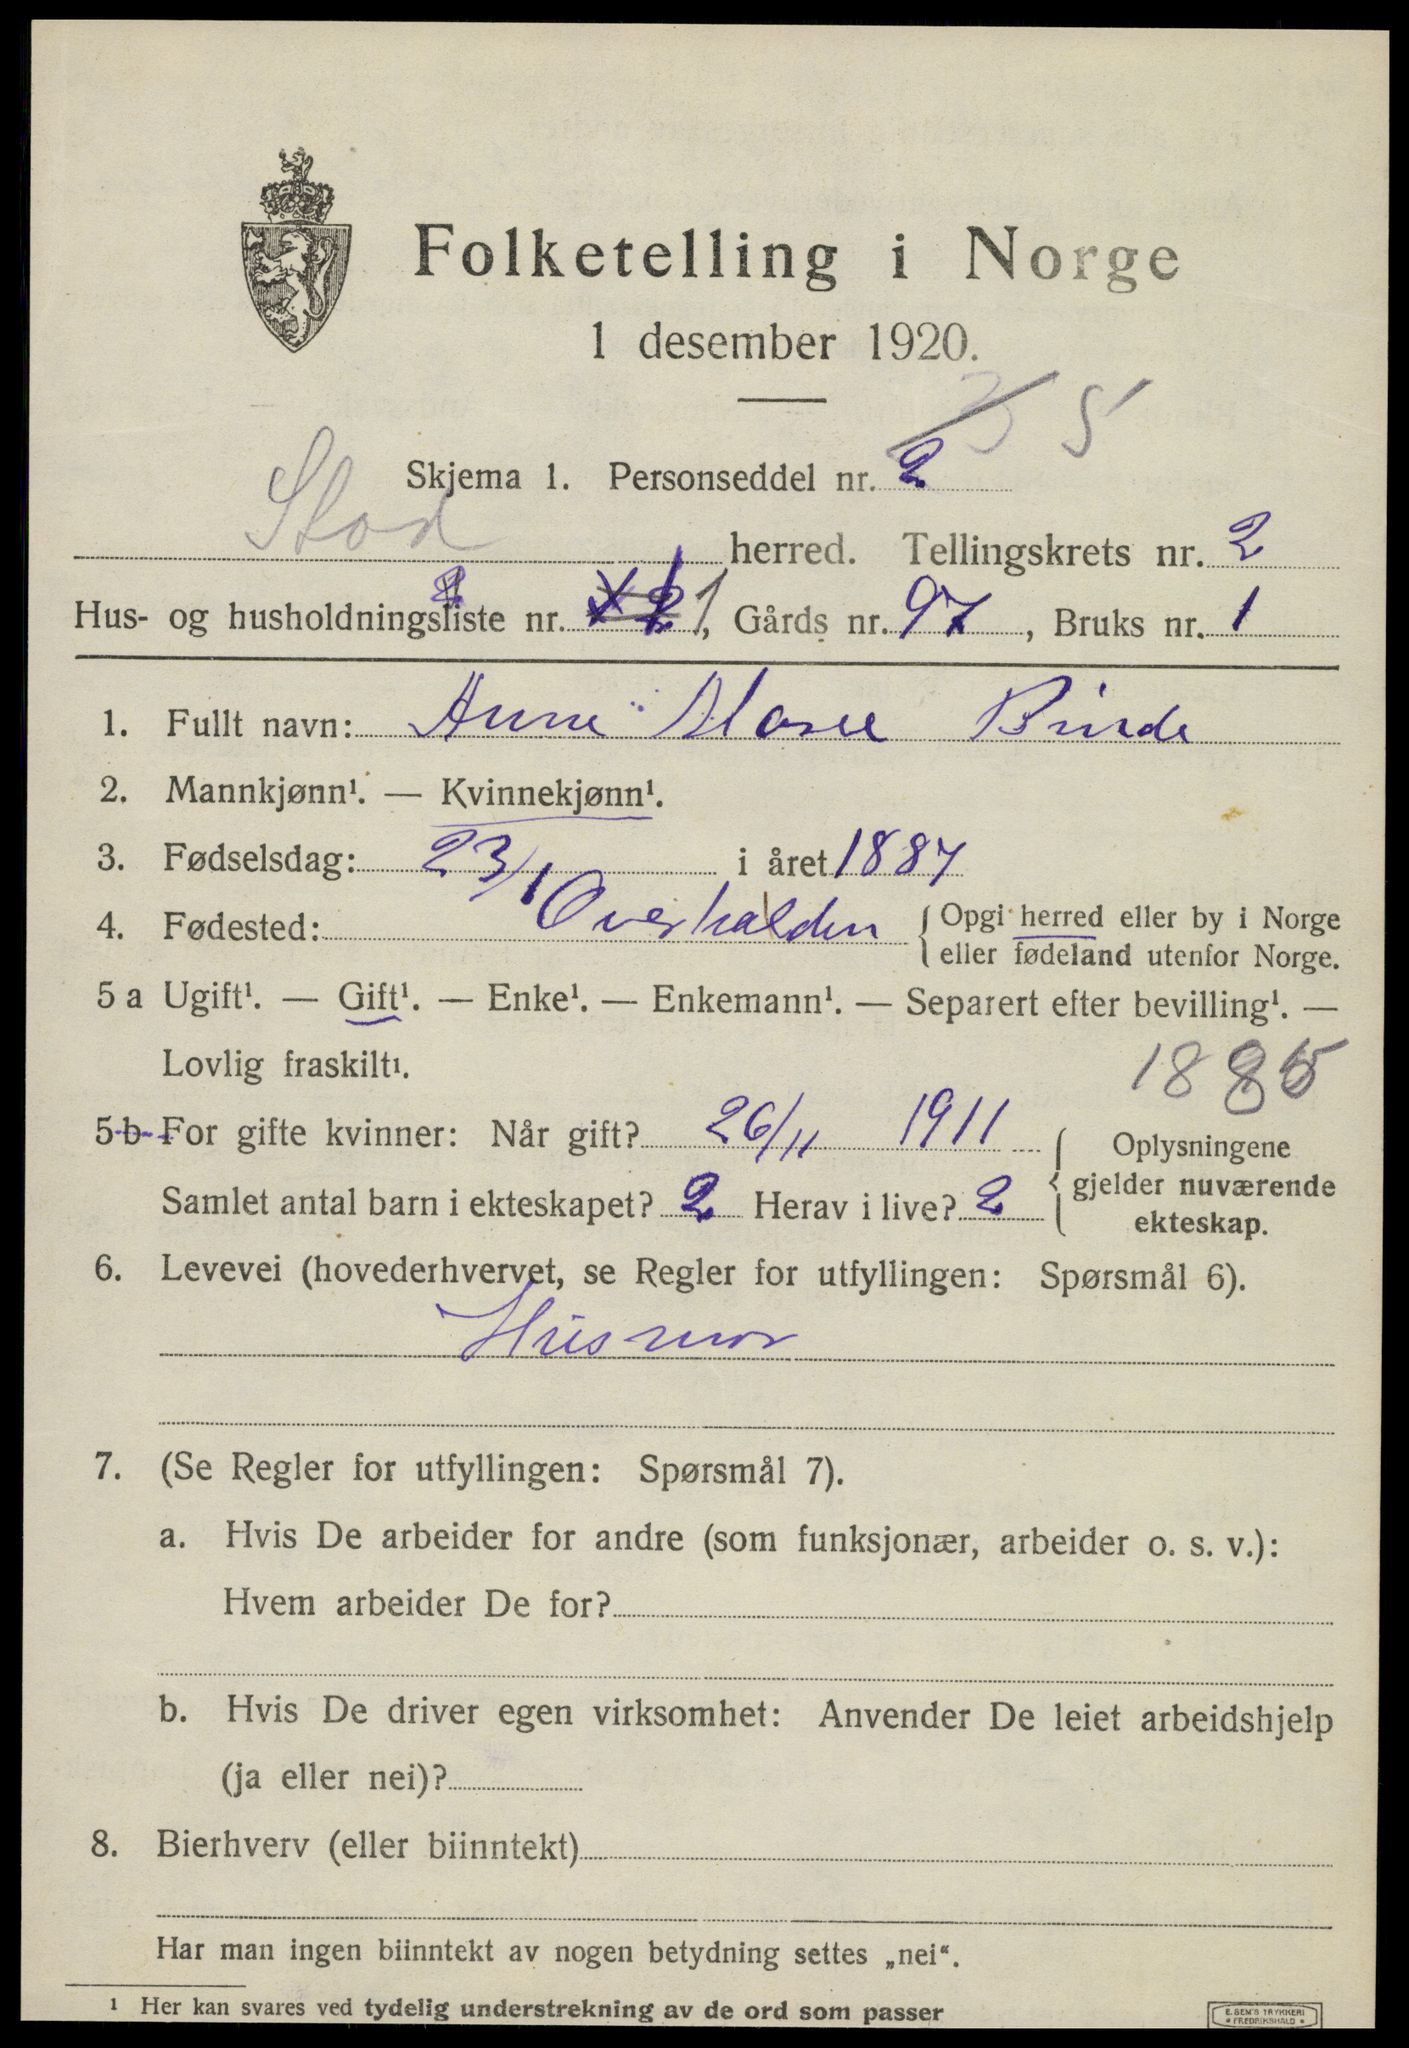 Folketelling i Norge
1 desember 1920.
5
Skjema 1. Personseddel nr. 2
Stod herred. Tellingskrets nr. 2
Hus- og husholdningsliste nr. 1, Gårds nr. 97, Bruks nr. 1
1. Fullt navn: Anne Binde
2. Mannkjønn¹. — Kvinnekjønn¹.
3. Fødselsdag: 23/1 i året 1887
4. Fødested: Overhalden { Opgi herred eller by i Norge
eller fødeland utenfor Norge.
5 a Ugift¹. — Gift¹. — Enke¹. — Enkemann¹. — Separert efter bevilling¹. —
Lovlig fraskilt¹.
5 b For gifte kvinner: Når gift? 26/11 1911
Samlet antal barn i ekteskapet? 2 Herav i live? 2
Oplysningene
gjelder nuværende
ekteskap.
6. Levevei (hovederhvervet, se Regler for utfyllingen: Spørsmål 6).
Husmor
7. (Se Regler for utfyllingen: Spørsmål 7).
a. Hvis De arbeider for andre (som funksjonær, arbeider o. s. v.):
Hvem arbeider De for?
b. Hvis De driver egen virksomhet: Anvender De leiet arbeidshjelp
(ja eller nei)?
8. Bierhverv (eller biinntekt)
Har man ingen biinntekt av nogen betydning settes „nei“.
¹ Her kan svares ved tydelig understrekning av de ord som passer
E. SEM'S TRYKKERI
• FREDRIKSHALD •